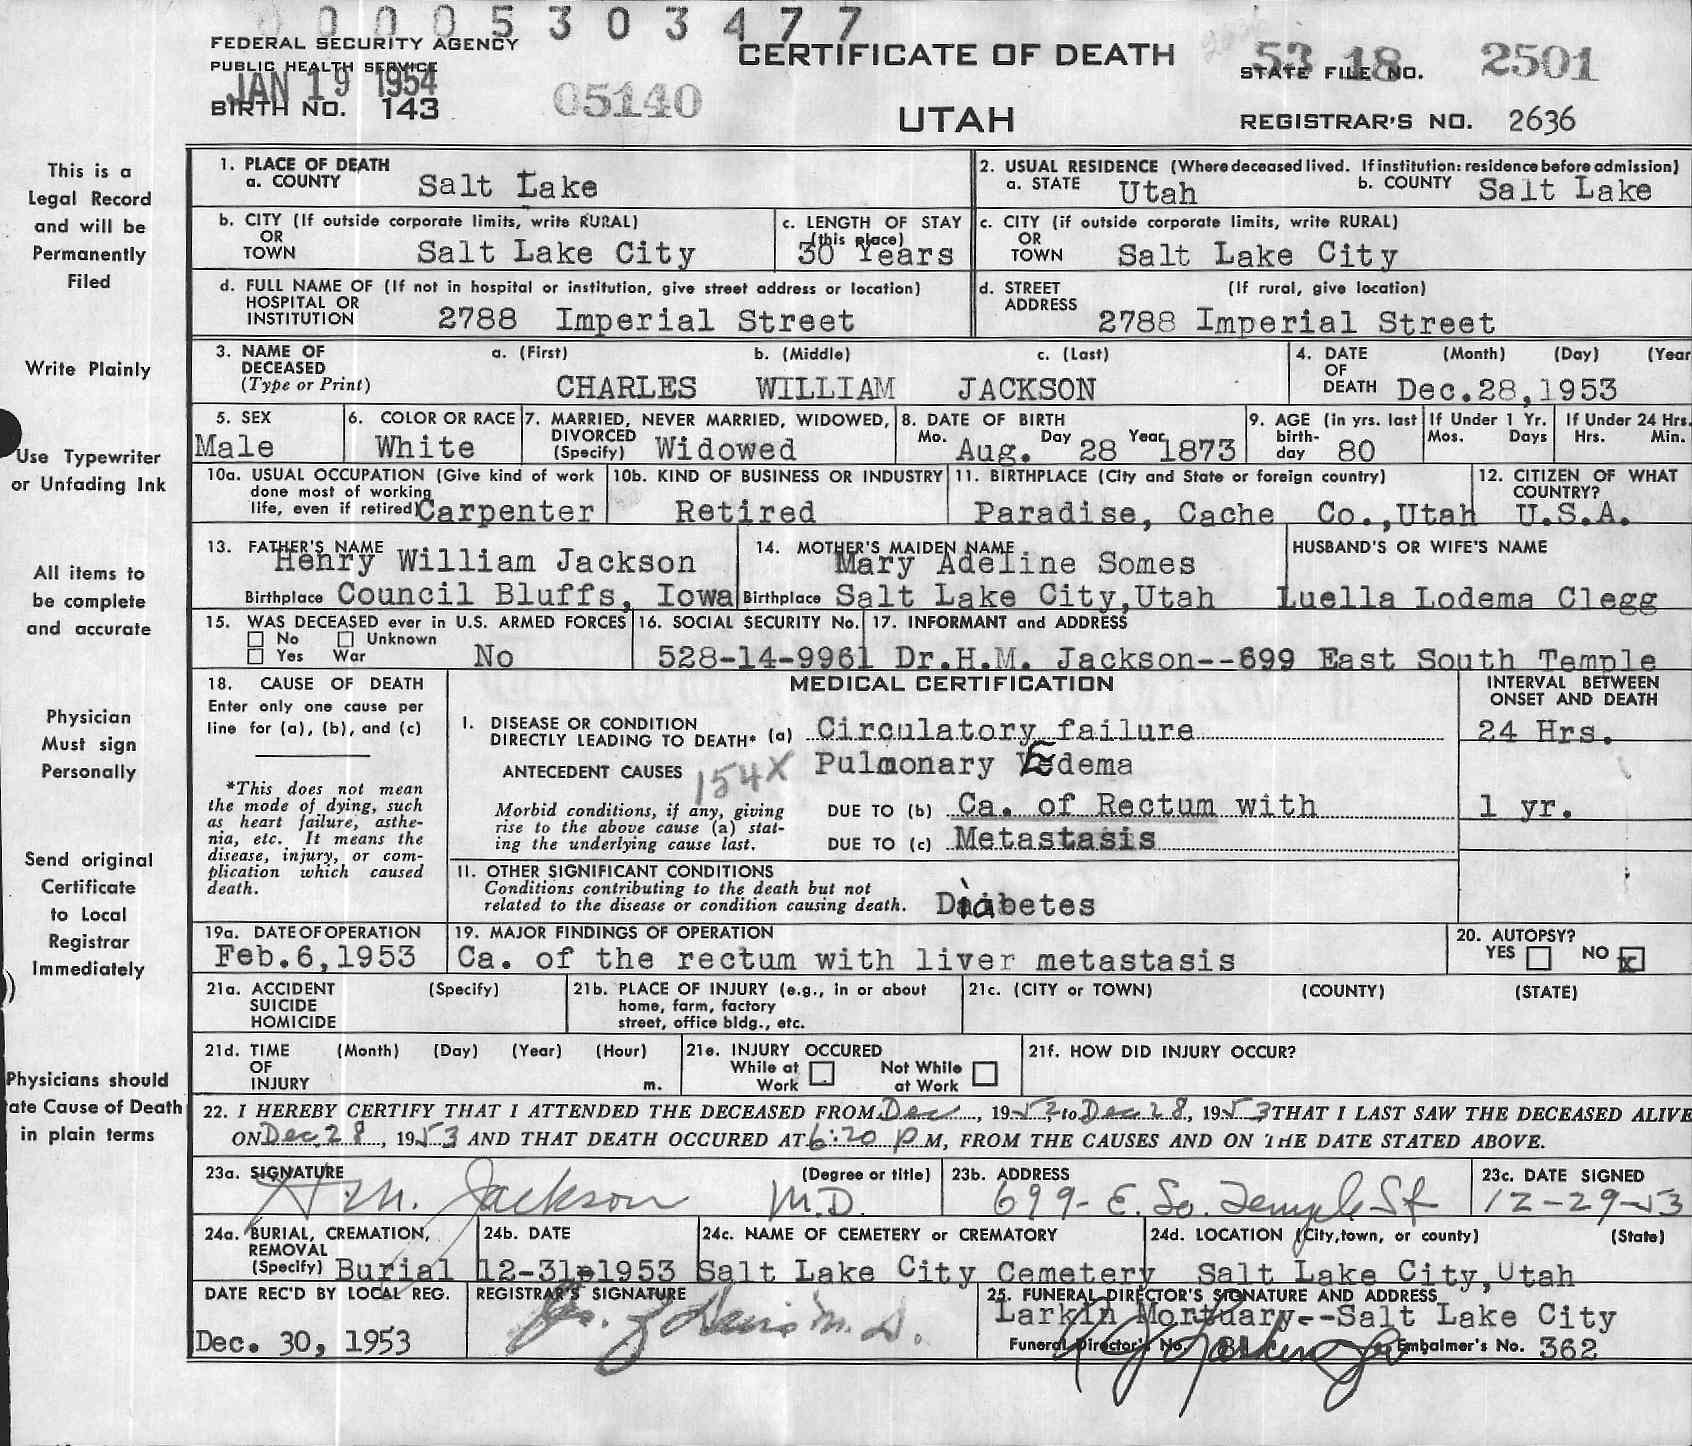 0005303477
FEDERAL SECURITY AGENCY
PUBLIC HEALTH SERVICE
JAN 19 1954
BIRTH NO. 143
05140
CERTIFICATE OF DEATH
UTAH
53 18 2501
STATE FILE NO.
REGISTRAR'S NO. 2636
This is a
Legal Record
and will be
Permanently
Filed
Write Plainly
Use Typewriter
or Unfading Ink
All items to
be complete
and accurate
Physician
Must sign
Personally
Send original
Certificate
to Local
Registrar
Immediately
Physicians should
ate Cause of Death
in plain terms
1. PLACE OF DEATH
a. COUNTY Salt Lake
2. USUAL RESIDENCE (Where deceased lived. If institution: residence before admission)
a. STATE Utah b. COUNTY Salt Lake
b. CITY (If outside corporate limits, write RURAL)
OR
TOWN Salt Lake City
c. LENGTH OF STAY
(this place)
30 Years
c. CITY (if outside corporate limits, write RURAL)
OR
TOWN Salt Lake City
d. FULL NAME OF (If not in hospital or institution, give street address or location)
HOSPITAL OR
INSTITUTION 2788 Imperial Street
d. STREET (If rural, give location)
ADDRESS
2788 Imperial Street
3. NAME OF a. (First) b. (Middle) c. (Last)
DECEASED
(Type or Print) CHARLES WILLIAM JACKSON
4. DATE (Month) (Day) (Year
OF
DEATH Dec.28,1953
5. SEX
Male
6. COLOR OR RACE
White
7. MARRIED, NEVER MARRIED, WIDOWED,
DIVORCED
(Specify) Widowed
8. DATE OF BIRTH
Mo. Day Year
Aug. 28 1873
9. AGE (in yrs. last
birth-
day 80
If Under 1 Yr.
Mos. Days
If Under 24 Hrs.
Hrs. Min.
10a. USUAL OCCUPATION (Give kind of work
done most of working
life, even if retired) Carpenter
10b. KIND OF BUSINESS OR INDUSTRY
Retired
11. BIRTHPLACE (City and State or foreign country)
Paradise, Cache Co.,Utah
12. CITIZEN OF WHAT
COUNTRY?
U.S.A.
13. FATHER'S NAME
Henry William Jackson
Birthplace Council Bluffs, Iowa
14. MOTHER'S MAIDEN NAME
Mary Adeline Somes
Birthplace Salt Lake City,Utah
HUSBAND'S OR WIFE'S NAME
Luella Lodema Clegg
15. WAS DECEASED ever in U.S. ARMED FORCES
No Unknown
Yes War No
16. SOCIAL SECURITY No.
528-14-9961
17. INFORMANT and ADDRESS
Dr.H.M. Jackson--699 East South Temple
18. CAUSE OF DEATH
Enter only one cause per
line for (a), (b), and (c)
*This does not mean
the mode of dying, such
as heart failure, asthe-
nia, etc. It means the
disease, injury, or com-
plication which caused
death.
MEDICAL CERTIFICATION
INTERVAL BETWEEN
ONSET AND DEATH
I. DISEASE OR CONDITION
DIRECTLY LEADING TO DEATH* (a) Circulatory failure 24 Hrs.
ANTECEDENT CAUSES 154X Pulmonary Edema
Morbid conditions, if any, giving
rise to the above cause (a) stat-
ing the underlying cause last.
DUE TO (b) Ca. of Rectum with 1 yr.
DUE TO (c) Metastasis
11. OTHER SIGNIFICANT CONDITIONS
Conditions contributing to the death but not
related to the disease or condition causing death. Diabetes
19a. DATE OF OPERATION
Feb.6,1953
19. MAJOR FINDINGS OF OPERATION
Ca. of the rectum with liver metastasis
20. AUTOPSY?
YES NO x
21a. ACCIDENT (Specify)
SUICIDE
HOMICIDE
21b. PLACE OF INJURY (e.g., in or about
home, farm, factory
street, office bldg., etc.
21c. (CITY or TOWN) (COUNTY) (STATE)
21d. TIME (Month) (Day) (Year) (Hour)
OF
INJURY m.
21e. INJURY OCCURED
While at Not While
Work at Work
21f. HOW DID INJURY OCCUR?
22. I HEREBY CERTIFY THAT I ATTENDED THE DECEASED FROM Dec, 1952 to Dec 28, 1953 THAT I LAST SAW THE DECEASED ALIVE
ON Dec. 28, 1953 AND THAT DEATH OCCURED AT 6:20 P M, FROM THE CAUSES AND ON THE DATE STATED ABOVE.
23a. SIGNATURE (Degree or title)
H.M. Jackson M.D.
23b. ADDRESS
699- E. So. Temple St
23c. DATE SIGNED
12-29-53
24a. BURIAL, CREMATION,
REMOVAL
(Specify) Burial
24b. DATE
12-31-1953
24c. NAME OF CEMETERY or CREMATORY
Salt Lake City Cemetery
24d. LOCATION (City,town, or county) (State)
Salt Lake City,Utah
DATE REC'D BY LOCAL REG.
Dec. 30, 1953
REGISTRAR'S SIGNATURE
M.D.
25. FUNERAL DIRECTOR'S SIGNATURE AND ADDRESS
Larkin Mortuary--Salt Lake City
Funeral Director's No. Embalmer's No. 362